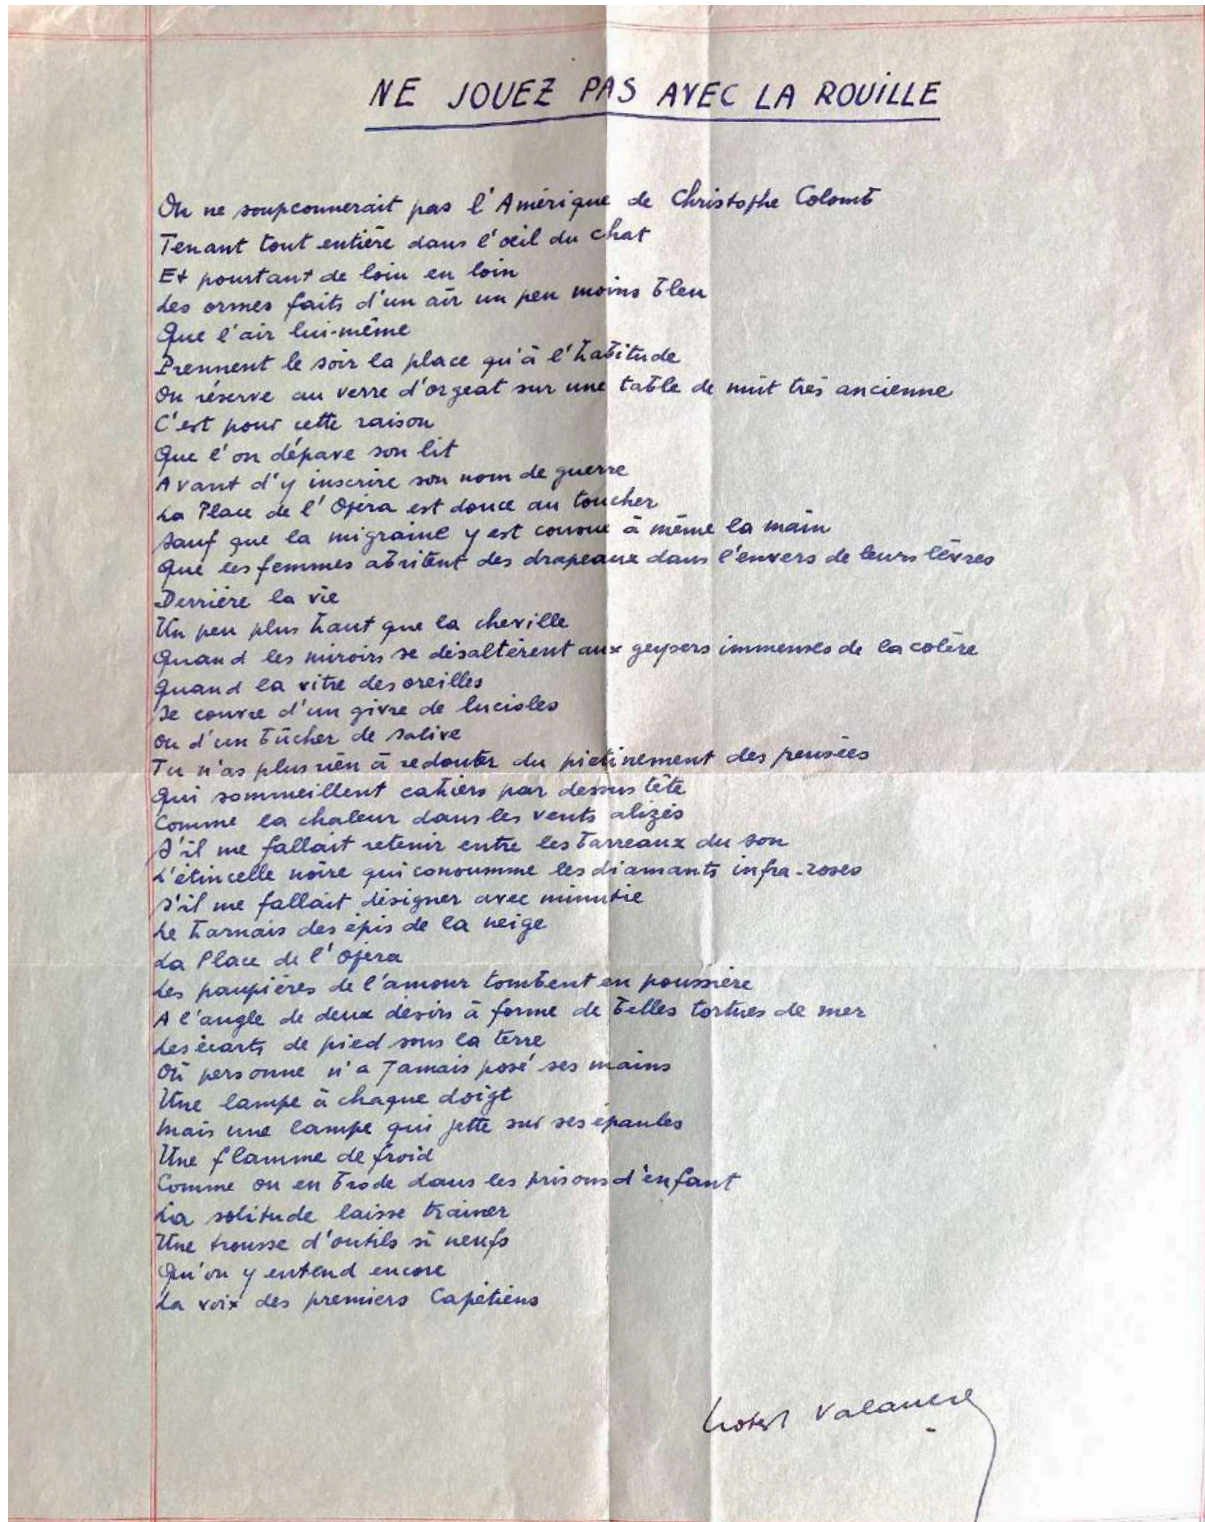 NE JOUEZ PAS AVEC LA ROUILLE
On ne soupconnerait pas l'Amérique de Christophe Colomb
Tenant tout entière dans l'œil du chat
Et pourtant de loin en loin
Les ormes faits d'un air un peu moins bleu
Que l'air lui-même
Prennent le soir la place qu'à l'habitude
On réserve au verre d'orgeat sur une table de nuit très ancienne
C'est pour cette raison
Que l'on dépave son lit
Avant d'y inscrire son nom de guerre
La Place de l'Opéra est douce au toucher
Sauf que la migraine y est cousue à même la main
Que les femmes abritent des drapeaux dans l'envers de leurs lèvres
Derrière la vie
Un peu plus haut que la cheville
Quand les miroirs se désaltèrent aux geysers immenses de la colère
Quand la vitre des oreilles
Se couvre d'un givre de lucioles
Ou d'un bûcher de salive
Tu n'as plus rien à redouter du piétinement des pensées
Qui sommeillent cahiers par dessus tête
Comme la chaleur dans les vents alizés
S'il me fallait retenir entre les barreaux du son
L'étincelle noire qui conoumme les diamants infra-roses
S'il me fallait désigner avec minutie
Le harnais des épis de la neige
La Place de l'Opéra
Les paupières de l'amour tombent en poussière
A l'angle de deux désirs à forme de belles tortues de mer
Les écarts de pied sous la terre
Où personne n'a jamais posé ses mains
Une lampe à chaque doigt
Mais une lampe qui jette sur ses épaules
Une flamme de froid
Comme on en brode dans les prisons d'enfant
La solitude laisse trainer
Une trousse d'outils si neufs
Qu'on y entend encore
La voix des premiers Capétiens